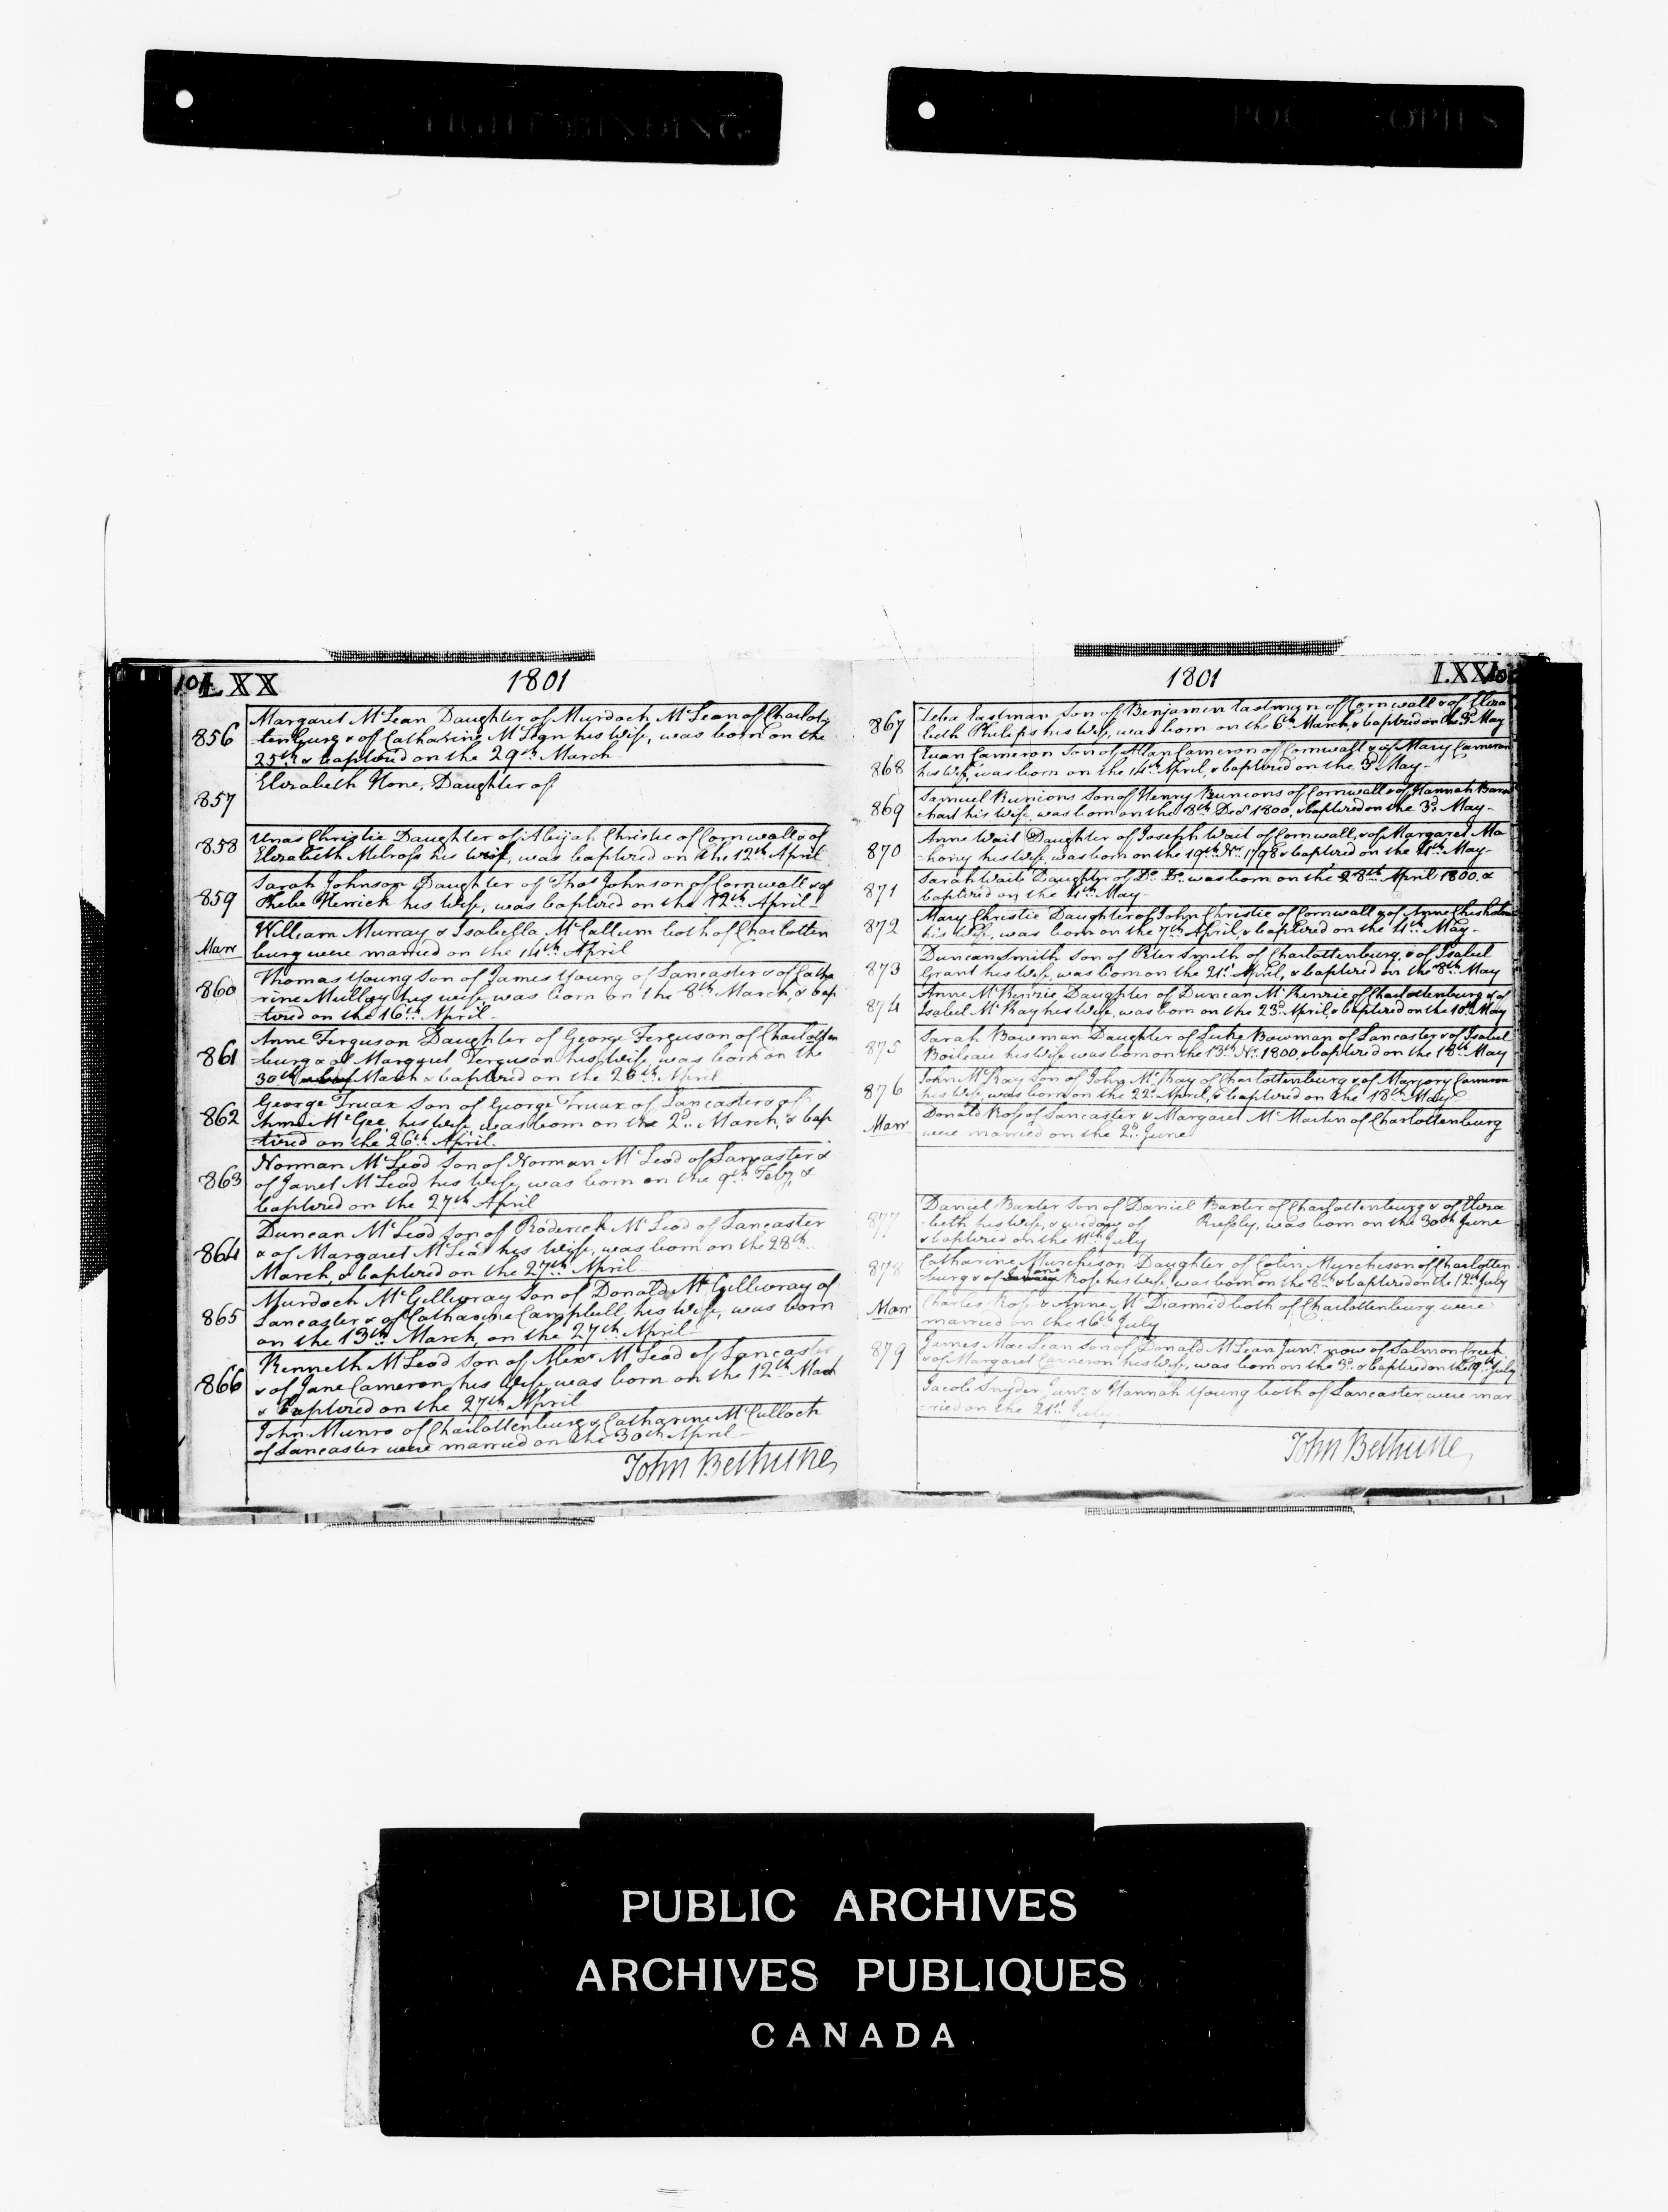 TIGHT BINDING
POOR COPIES
LXX
1801
856
Margaret McLean Daughter of Murdoch McLean of Charlot
tenburg & of Catharine McLean his Wife, was born on the
25th & baptized on the 29th March
857
Elizabeth Hone, Daughter of
858
Unas Christie Daughter of Abijah Christie of Cornwall & of
Elizabeth Melross his wife, was baptized on the 12th April
859
Sarah Johnson Daughter of Thos Johnson of Cornwall & of
Phebe Herrick his Wife, was baptized on the 12th April
Marr
William Murray & Isabella McCallum both of Charlotten
burg were married on the 14th April
860
Thomas Young Son of James Young of Lancaster & of Catha
rine Mulloy his wife, was born on the 8th March, & bap
tized on the 16th April
861
Anne Ferguson Daughter of George Ferguson of Charlotten
burg & of Margaret Ferguson his Wife was born on the
30th March & baptized on the 26th April
862
George Truax Son of George Truax of Lancaster & of
McGee, his Wife, was born on the 2d March, & bap
tized on the 26th April
863
Norman McLeod Son of Norman McLeod of Lancaster &
of Janet McLeod his Wife, was born on the 9th Feby, &
baptized on the 27th April
864
Duncan McLeod Son of Roderick McLeod of Lancaster
& of Margaret McLeod his Wife, was born on the 28th
March, & baptized on the 27th April
865
Murdoch McGillivray Son of Donald McGillivray of
Lancaster & of Catharine Campbell his Wife, was born
on the 13th March, on the 27th April
866
Kenneth McLeod Son of Alexr McLeod of Lancaster
& of Jane Cameron his Wife was born on the 12th March
& baptized on the 27th April
John Munro of Charlottenburg & Catharine McCulloch
of Lancaster were married on the 30th April
John Bethune
1801
LXXI
867
Eastman Son of Benjamin Eastman of Cornwall & of Eliza
beth Philips his Wife, was born on the 6th March, & baptized on the 3d May
868
Euan Cameron Son of Allan Cameron of Cornwall & of Mary Cameron
his Wife, was born on the 14th April, & baptized on the 3d May
869
Samuel Runions Son of Henry Runions of Cornwall & of Hannah Barn
hart his Wife, was born on the 8th Decr 1800, & baptized on the 3d May
870
Anne Wait Daughter of Joseph Wait of Cornwall, & of Margaret Ma
hony his Wife, was born on the 19th Nr 1798 & baptized on the 4th May
871
Sarah Wait Daughter of Do Do was born on the 28th April 1800, &
baptized on the 4th May
872
Mary Christie Daughter of John Christie of Cornwall & of Anne Chisholm
his Wife, was born on the 7th April & baptized on the 4th May
873
Duncan Smith Son of Peter Smith of Charlottenburg, & of Isabel
Grant his Wife, was born on the 21st April, & baptized on the 8th May
874
Anne McKenzie Daughter of Duncan McKenzie of Charlottenburg & of
Isabel McKay his Wife, was born on the 23d April, & baptized on the 10th May
875
Sarah Bowman Daughter of Luke Bowman of Lancaster & of Isabel
Boileau his Wife was born on the 13th Nr 1800, & baptized on the 18th May
876
John McKay Son of John McKay of Charlottenburg & of Marjory Cameron
his Wife, was born on the 22d April, & baptized on the 18th May
Marr
Donald Ross of Lancaster & Margaret McMartin of Charlottenburg
were married on the 2d June
877
Daniel Baxter Son of Daniel Baxter of Charlottenburg & of Eliza
beth his Wife, & widow of Pressly, was born on the 30th June
& baptized on the 11th July
878
Catharine Murchison Daughter of Colin Murchison of Charlotten
burg & of Rose his Wife, was born on the 8th & baptized on the 12th July
Marr
Charles Ross & Anne McDiarmid both of Charlottenburg were
married on the 16th July
879
James MacLean Son of Donald McLean Junr now of Salmon Creek
& of Margaret Cameron his Wife, was born on the 3d & baptized on the 19th July
Jacob Snyder Junr & Hannah Young both of Lancaster were mar
ried on the 21st July
John Bethune
PUBLIC ARCHIVES
ARCHIVES PUBLIQUES
CANADA